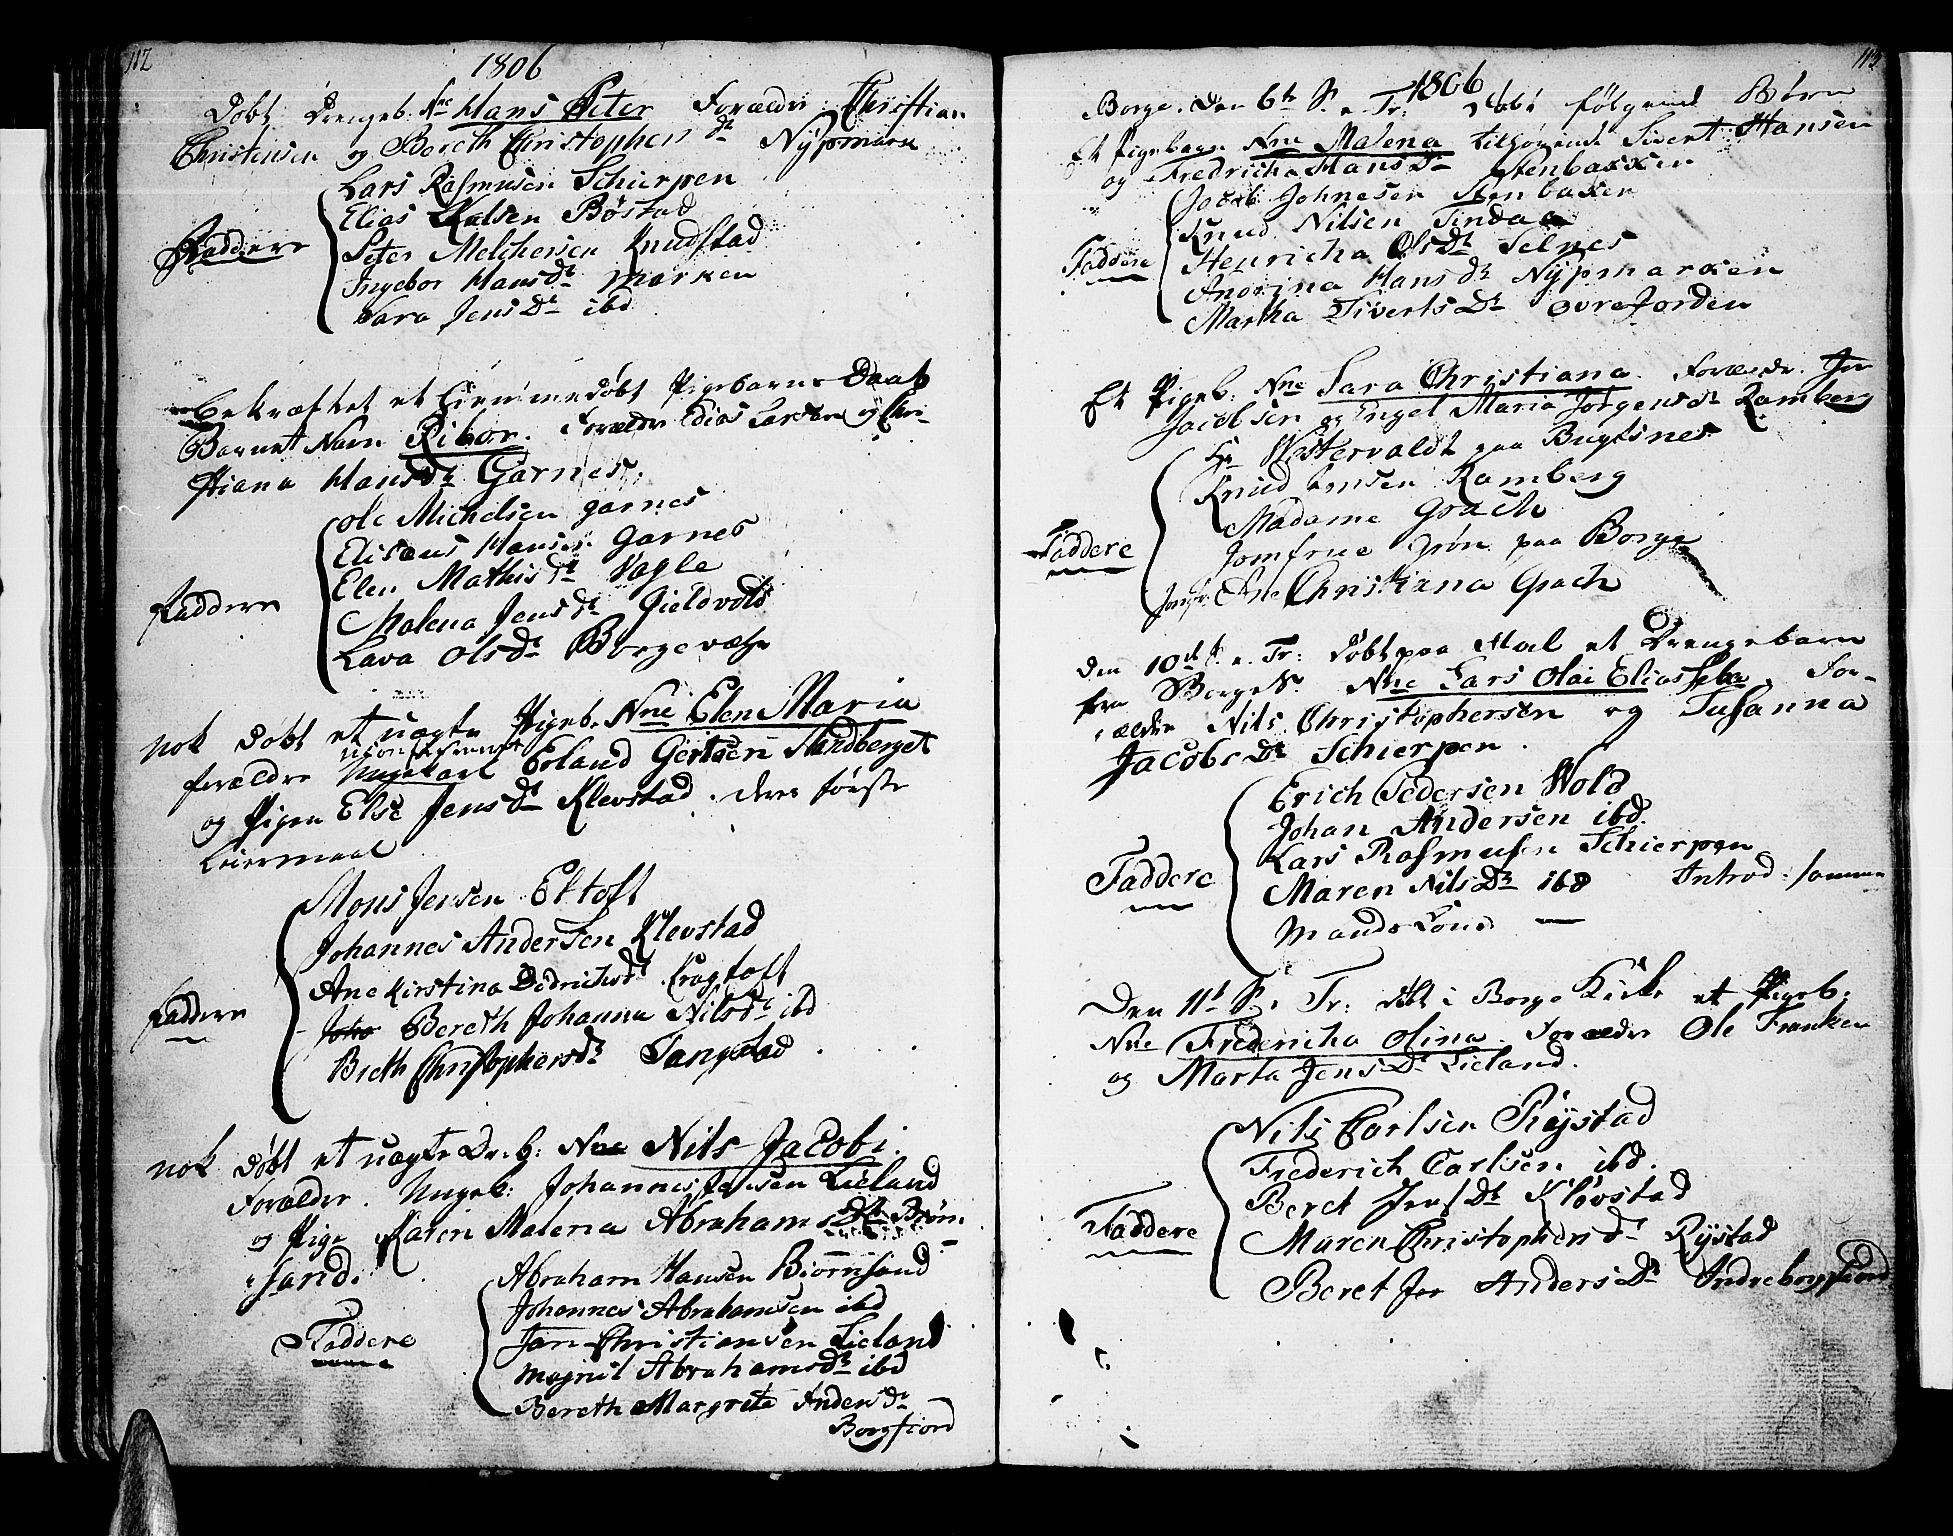 112
1806
Døbt Drengeb. Nne Hans Peter Forældr: Christian
Christensen og Bereth Christophers Dr Nÿpmark
Lars Rasmusen Schierpen
Elias Karlsen Bøstad
Peter Melchersen Knudstad
Faddere
Ingebor Hansdr Marken
Sara JensDr ibd
bekræftet et hiemmedøbt Pigebarns Daab
Barnet Navn Ribor. Forældr Elias Larsen og Chri-
stiana Hansdr Garnes.
Ole Michelsen garnes
Eliseus Hansen Garnes
Elen MathisDr Vagle
Faddere
Malena JensDr Gieldvold
Lava OlsDr Borgevæhr
nok Døbt et uægte Pigeb. Nne Elen Maria
forældre Ungekarl Erland Gertsen Sandberget
og Pigen Else JensDr Klevstad. deres første
Leiermaal
Mons Jensen Eltoft
Johannes Andersen Klevstad
Ane Kirstina DidrichsDr Kragtoft
Faddere
Bereth Johanna NilsDr ibd
Breth ChristophersDr Tangstad
nok døbt et uægte Dr.b: Nne Nils Jacobi.
Forældre. Ungek: Johannes Jensen Lieland
og Pige Karen Malena AbrahamsDr Biørn-
sand.
Abraham Hansen Biørnsand
Johannes Abrahamsen ibd
Faddere
Jan Christiansen Lieland
Magnil AbrahamsDr ibd
Bereth Margrete AndersDr
Borgfiord
113
1806
Borge. Den 6te S. e. Tr: døbt følgende Børn
Et Pigebarn Nne Malena tilhørende Sivert Hansen
og Fredricha HansDr Stenbakken
Jacob Johnesen Stenbaken
Knud Nilsen Tindaa
Faddere
Henricha OlsDr Selnes
Anorina HansDr Nÿpmarken
Martha SivertsDr øvreJorden
Et Pigeb: Nne Sara Christiana. Forældr. Jon
Jacobsen og Engel Maria JørgensDr Ramberg
Hr Westervaldt paa Bugtsnes
Knud Jensen Ramberg
Madame Grach
Faddere
Jomfrue Grøn paa Borge
Jomfr: Ane Christiana Grach
den 10de S. e. Tr: døbt paa Hoel et Drengebarn
fra Borge S. Nne Lars Olai Elias Seba. For-
ældre Nils Christophersen og Susanna
JacobsDr Schierpen.
Erich Pedersen Wold
Johan Andersen ibd.
Lars Rasmusen Schierpen
Faddere
Maren NilsDr ibd Introd: samme
Mands Kone —
Den 11te S. e. Tr: døbt i Borge Kirke et Pigeb.
Nne Fredericha Olina. Forældre Ole Franken
og Marta JensDr Lieland.
Nils Carlsen Rÿstad
Frederich Carlsen ibd.
Beret JensDr Kløvstad
Faddere
Maren ChristophersDr Rÿstad
Beret AndersDr Indreborgfiord